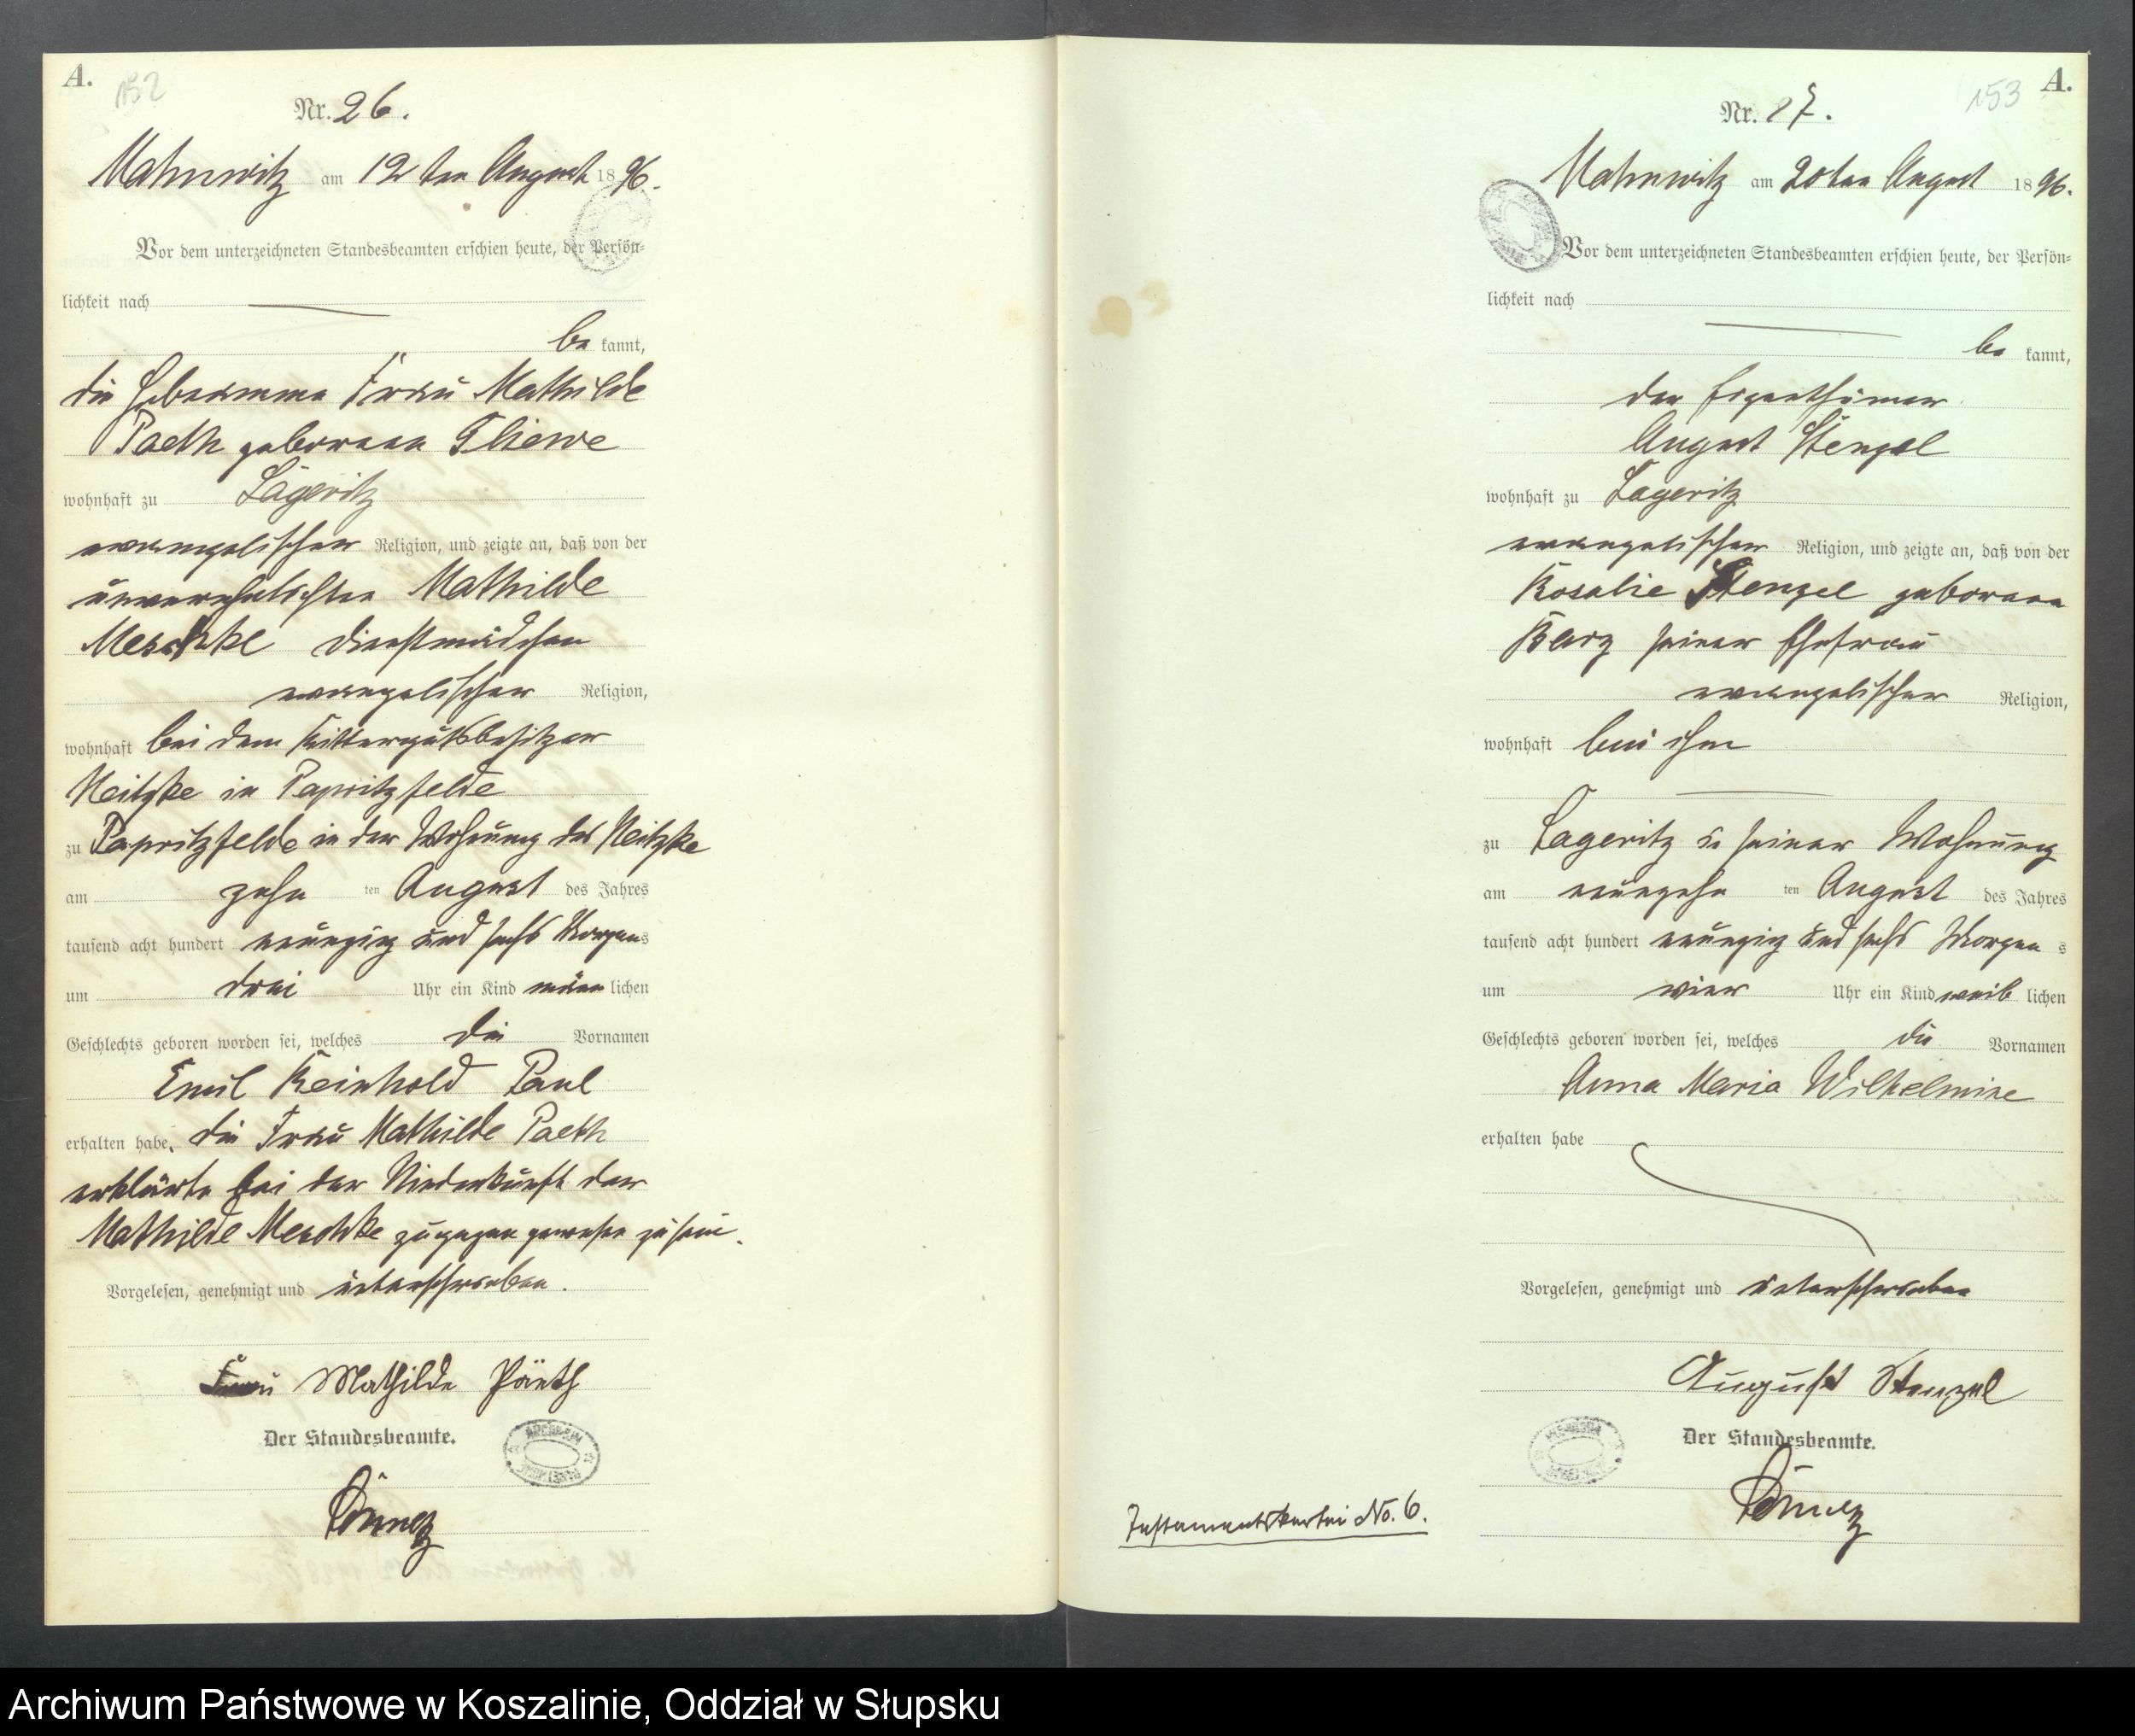 A.
152
Nr. 26.
Mahnwitz am 12ten August 1896.
Vor dem unterzeichneten Standesbeamten erschien heute, der Persön-
lichkeit nach
be kannt,
die Hebeamme Frau Mathilde
Paeth geborene Thiewe
wohnhaft zu Lageritz
evangelischer Religion, und zeigte an, daß von der
unverehelichten Mathilde
Meschke Dienstmädchen
evangelischer Religion,
wohnhaft bei dem Rittergutsbesitzer
Neitzke in Papritzfelde
zu Papritzfelde in der Wohnung des Neitzke
am zehn ten August des Jahres
tausend acht hundert neunzig und sechs Morgens
um drei Uhr ein Kind männlichen
Geschlechts geboren worden sei, welches die Vornamen
Emil Reinhold Paul
erhalten habe. die Frau Mathilde Paeth
erklärte bei der Niederkunft der
Mathilde Meschke zugegen gewesen zu sein.
Vorgelesen, genehmigt und unterschrieben.
Frau Mathilde Päeth
Der Standesbeamte.
A.
153
Nr. 27.
Mahnwitz am 20ten August 1896.
Vor dem unterzeichneten Standesbeamten erschien heute, der Persön-
lichkeit nach
be kannt,
der Eigenthümer
August Stenzel
wohnhaft zu Lageritz
evangelischer Religion, und zeigte an, daß von der
Rosalie Stenzel geborene
Barz seiner Ehefrau
evangelischer Religion,
wohnhaft bei ihm
zu Lageritz in seiner Wohnung
am neunzehn ten August des Jahres
tausend acht hundert neunzig und sechs Morgens
um vier Uhr ein Kind weiblichen
Geschlechts geboren worden sei, welches die Vornamen
Anna Maria Wilhelmine
erhalten habe
Vorgelesen, genehmigt und unterschrieben
August Stenzel
Der Standesbeamte.
Testamentskartei No. 6.
Archiwum Państwowe w Koszalinie, Oddział w Słupsku